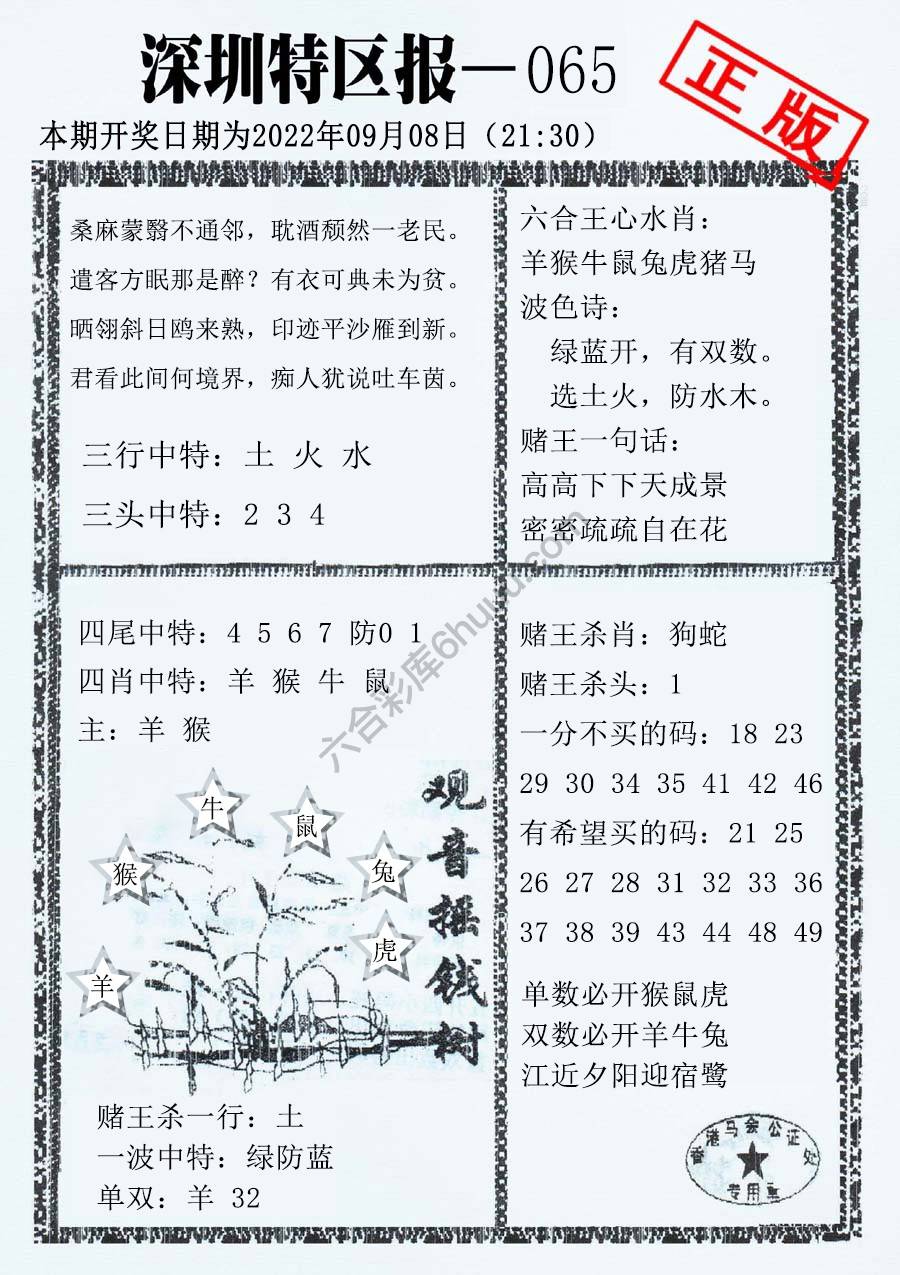 深圳特区报—065
正版
本期开奖日期为2022年09月08日（21:30）
桑麻蒙翳不通邻，耽酒颓然一老民。
遣客方眠那是醉？有衣可典未为贫。
晒翎斜日鸥来熟，印迹平沙雁到新。
君看此间何境界，痴人犹说吐车茵。
三行中特：土 火 水
三头中特：2 3 4
六合王心水肖：
羊猴牛鼠兔虎猪马
波色诗：
绿蓝开，有双数。
选土火，防水木。
赌王一句话：
高高下下天成景
密密疏疏自在花
四尾中特：4 5 6 7 防0 1
四肖中特：羊 猴 牛 鼠
主：羊 猴
牛
鼠
猴
兔
虎
羊
观音摇钱树
赌王杀一行：土
一波中特：绿防蓝
单双：羊 32
赌王杀肖：狗蛇
赌王杀头：1
一分不买的码：18 23
29 30 34 35 41 42 46
有希望买的码：21 25
26 27 28 31 32 33 36
37 38 39 43 44 48 49
单数必开猴鼠虎
双数必开羊牛兔
江近夕阳迎宿鹭
香港马会公证处
专用章
六合彩库6huuu.com